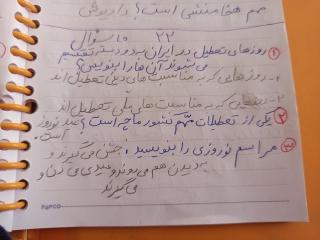 مهم هخامنشی است؟ داریوش
۲۲ ۱۵ سؤال
① روزهای تعطیل در ایران به دو دسته تقسیم
می شوند آن ها را بنویسید؟
۱- روزهایی که به مناسبت های دینی تعطیل اند
۲- روزهایی که به مناسبت های ملّی تعطیل اند
② یکی از تعطیلات مهّم کشور ما چه است؟ عید نوروز
است.
③ مراسم نوروزی را بنویسید: جشن می گیرند و
به دیدن هم می روند و عیدی می دهند و
می گیرند
PAPCO